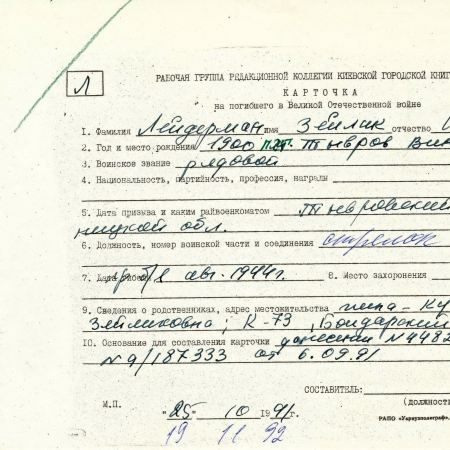 Л
РАБОЧАЯ ГРУППА РЕДАКЦИОННОЙ КОЛЛЕГИИ КИЕВСКОЙ ГОРОДСКОЙ КНИГ
КАРТОЧКА
на погибшего в Великой Отечественной войне
1. Фамилия Лейдерман имя Зейлик отчество
2. Год и место рождения 1900 п.г.т. Тывров Вин
3. Воинское звание рядовой
4. Национальность, партийность, профессия, награды
5. Дата призыва и каким райвоенкоматом Тывровский
ницкой обл.
6. Должность, номер воинской части и соединения стрелок
7. Дата пр б/в авг. 1944г. 8. Место захоронения
9. Сведения о родственниках, адрес местожительства жена - Ку
Зейликовна; К-73, Бондарский
10. Основание для составления карточки донесение №4482
№9/187333 от 6.09.91
СОСТАВИТЕЛЬ:
(должность
М.П. "25" 10 1991г.
РАПО «Укрвузполиграф».
19 11 92